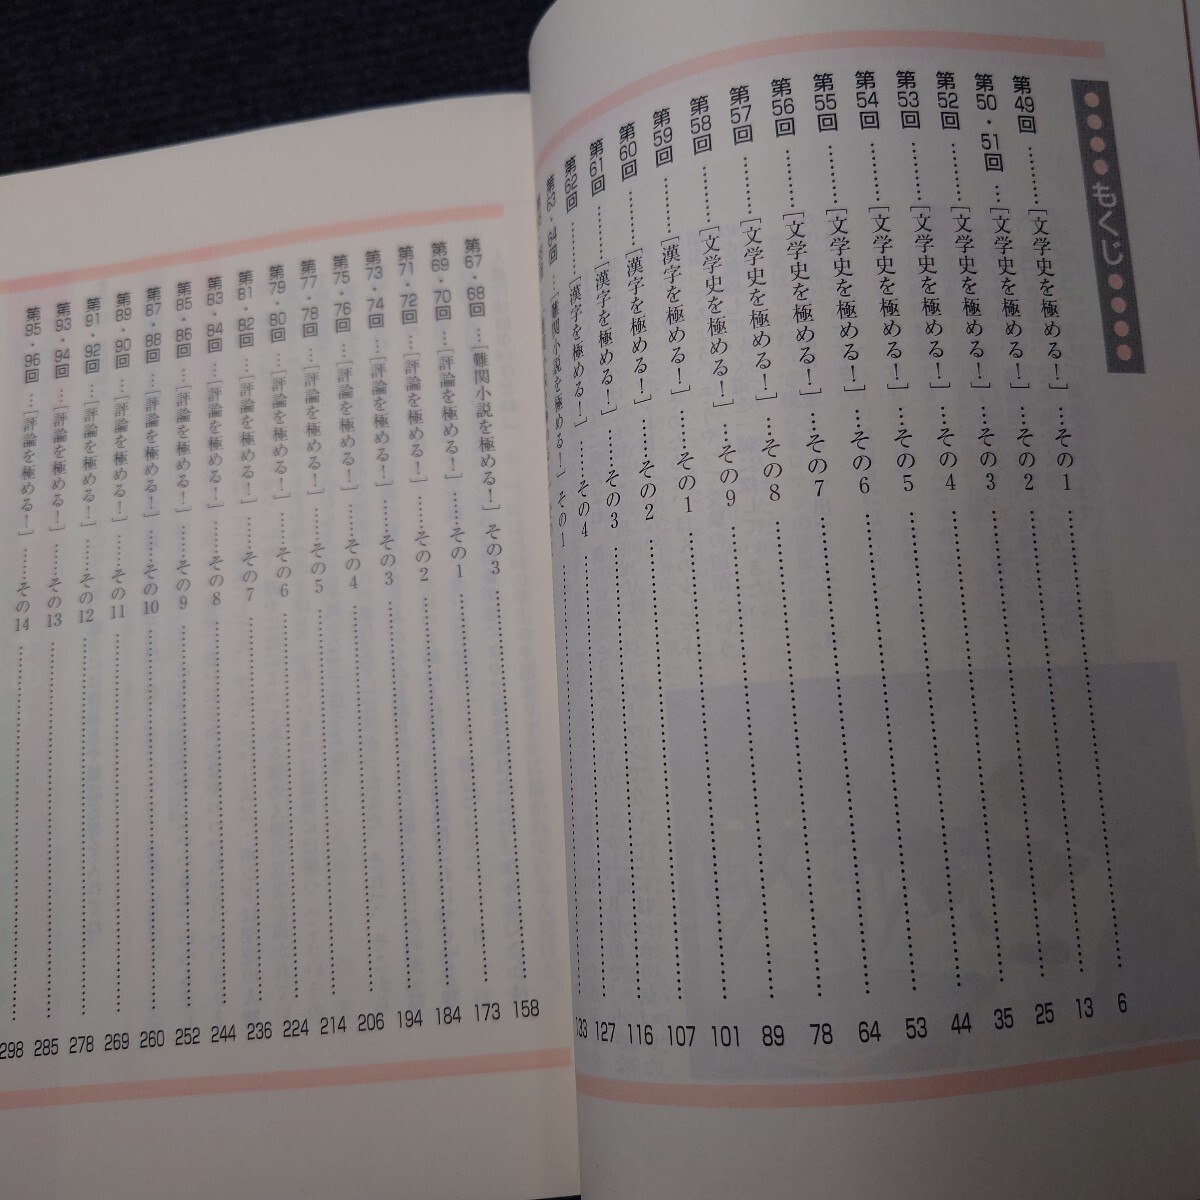 もくじ
第49回……[文学史を極める!]……その1……6
第50・51回…[文学史を極める!]……その2……13
第52回……[文学史を極める!]……その3……25
第53回……[文学史を極める!]……その4……35
第54回……[文学史を極める!]……その5……44
第55回……[文学史を極める!]……その6……53
第56回……[文学史を極める!]……その7……64
第57回……[文学史を極める!]……その8……78
第58回……[文学史を極める!]……その9……89
第59回……[漢字を極める!]……その1……101
第60回……[漢字を極める!]……その2……107
第61回……[漢字を極める!]……その3……116
第62回……[漢字を極める!]……その4……127
第63・64回…[難関小説を極める!]その1……133
第67・68回…[難関小説を極める!]その3……158
第69・70回…[評論を極める!]……その1……173
第71・72回…[評論を極める!]……その2……184
第73・74回…[評論を極める!]……その3……194
第75・76回…[評論を極める!]……その4……206
第77・78回…[評論を極める!]……その5……214
第79・80回…[評論を極める!]……その6……224
第81・82回…[評論を極める!]……その7……236
第83・84回…[評論を極める!]……その8……244
第85・86回…[評論を極める!]……その9……252
第87・88回…[評論を極める!]……その10……260
第89・90回…[評論を極める!]……その11……269
第91・92回…[評論を極める!]……その12……278
第93・94回…[評論を極める!]……その13……285
第95・96回…[評論を極める!]……その14……298